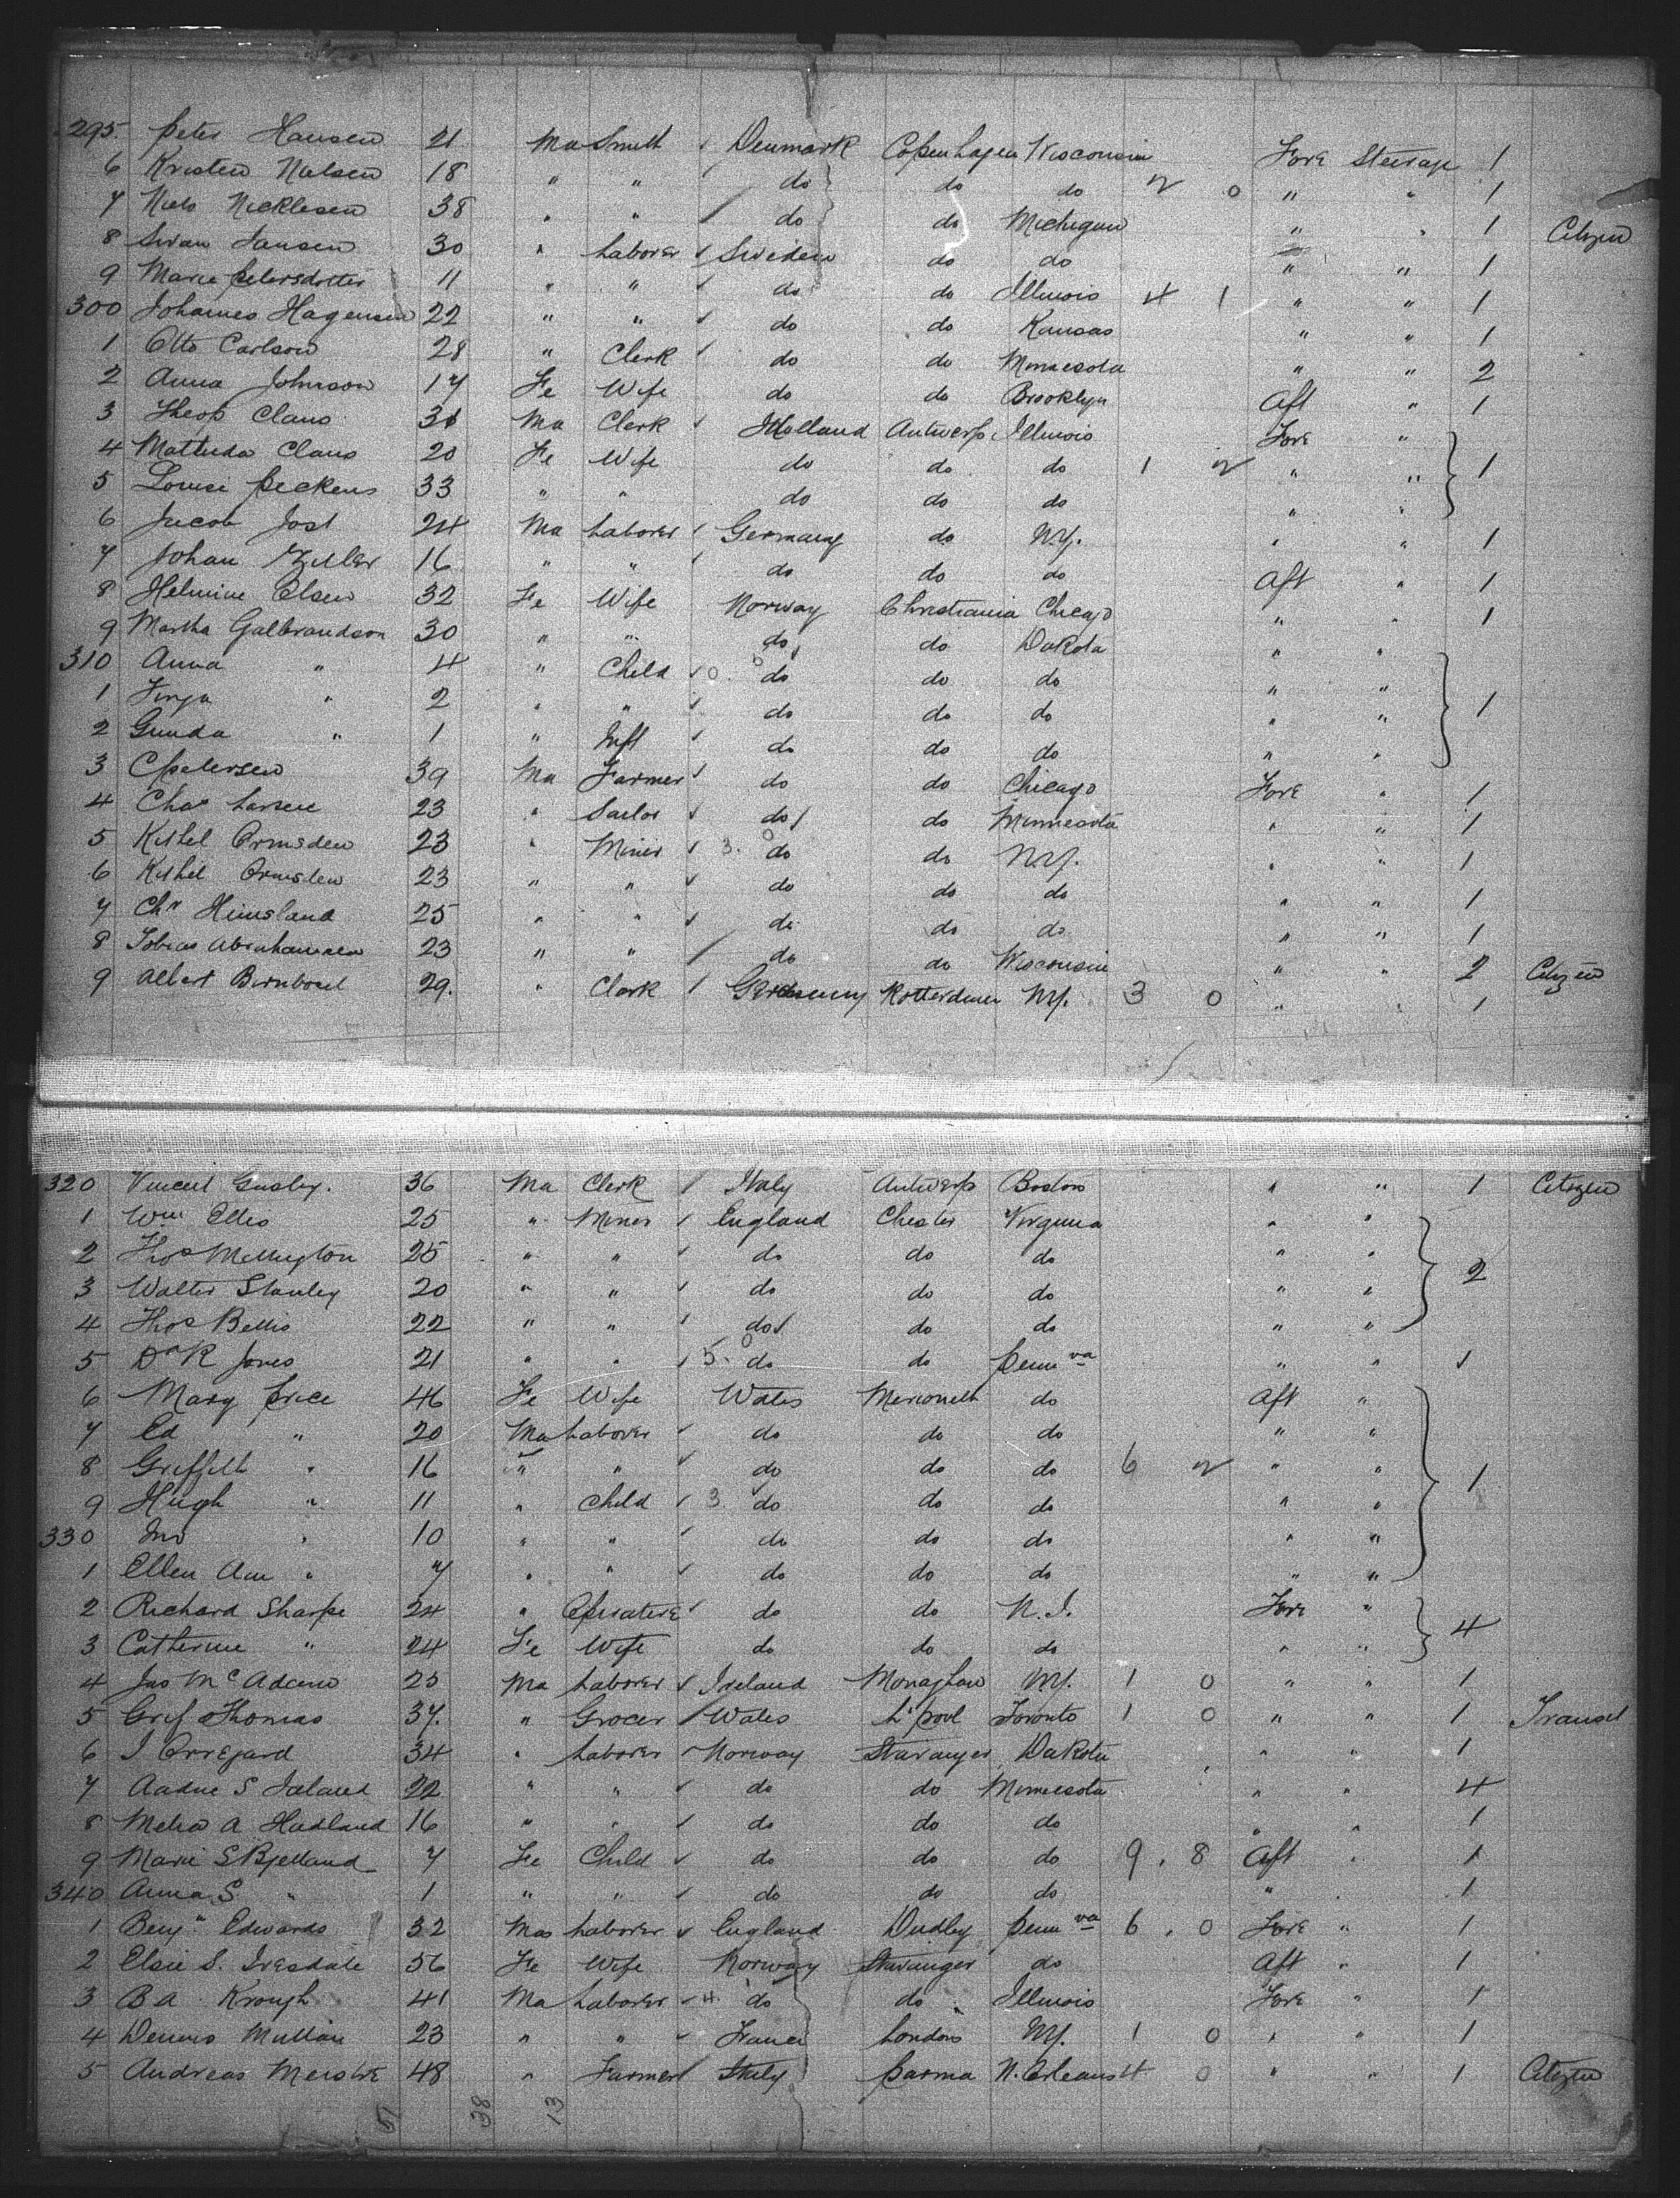 295 Peter Hansen 21 Ma Smith Denmark Copenhagen Wisconsin Fore Steerage 1
6 Kristen Nielsen 18 " " do do do 2 0 " " 1
7 Niels Nicklesen 38 " " do do Michigan " " 1 Citizen
8 Swan Jansen 30 " Laborer Sweden do do " " 1
9 Marie Petersdotter 11 " " do do Illinois 4 1 " " 1
300 Johannes Hagensen 22 " " do do Kansas " " 1
1 Otto Carlson 28 " Clerk do do Minnesota " " 2
2 Anna Johnson 17 Fe Wife do do Brooklyn Aft " 1
3 Theop Claus 31 Ma Clerk Holland Antwerp Illinois Fore "
4 Mathilda Claus 20 Fe Wife do do do 1 2 " " 1
5 Louise Peckens 33 " " do do do " "
6 Jacob Jost 24 Ma Laborer Germany do N.Y. " " 1
7 Johan Ziller 16 " " do do do Aft " 1
8 Helmine Olsen 32 Fe Wife Norway Christiania Chicago " " 1
9 Martha Galbrandson 30 " " do do Dakota " "
310 Anna " 4 " Child 0. 0 do do do " "
1 " 2 " " do do do " " 1
2 Gunda " 1 " Inft do do do " "
3 C Petersen 39 Ma Farmer do do Chicago Fore " 1
4 Chas Larsen 23 " Sailor do do Minnesota " " 1
5 Kithel Ormsden 23 " Miner 3. 0 do do N.Y. " " 1
6 Kithel Ormsden 23 " " do do do " " 1
7 Chn Himsland 25 " " do do do " " 1
8 Tobias Abrahamsen 23 " " do do Wisconsin " " 2 Citizen
9 Albert 29. " Clerk Germany Rotterdam N.Y. 3 0 " " 1
320 Vincent 36 Ma Clerk Italy Antwerp Boston " " 1 Citizen
1 Wm Ellis 25 " Miner England Chester Virginia " "
2 Thos Mellington 25 " " do do do " "
3 Walter Stanley 20 " " do do do " " 2
4 Thos Bellis 22 " " do do do " "
5 Dd R Jones 21 " " 5. 0 do do Pennva " " 1
6 Mary Price 46 Fe Wife Wales Merioneth do Aft "
7 Ed " 20 Ma Laborer do do do " "
8 Griffith " 16 " " do do do 6 2 " "
9 Hugh " 11 " Child 3. do do do " " 1
330 Jno " 10 " " do do do " "
1 Ellen Ann " 7 " " do do do " "
2 Richard Sharpe 24 " Operative do do N.J. Fore "
3 Catherine " 24 Fe Wife do do do " " 4
4 Jas McAdam 25 Ma Laborer Ireland Monaghan N.Y. 1 0 " " 1
5 Grif Thomas 37. " Grocer Wales L'pool Toronto 1 0 " " 1 Transit
6 I Orregard 34 " Laborer Norway Stavanger Dakota " " 1
7 Aadne S 22 " " do do Minnesota " " 4
8 A Hadland 16 " " do do do " " 1
9 Marie S Bjelland 7 Fe Child do do do 9. 8 Aft " 1
340 Anna S. " 1 " " do do do " " 1
1 Benjn Edwards 32 Mas Laborer England Dudley Pennva 6. 0 Fore " 1
2 Elsie S. Ivesdale 56 Fe Wife Norway Stavanger do Aft " 1
3 B A. Krough 41 Ma Laborer 4. do do Illinois Fore " 1
4 Dennis Mullan 23 " " France London N.Y. 1 0 " " 1
5 Andreas 48 " Farmer Italy Parma N. Orleans 4 0 " " 1 Citizen
51 38 13